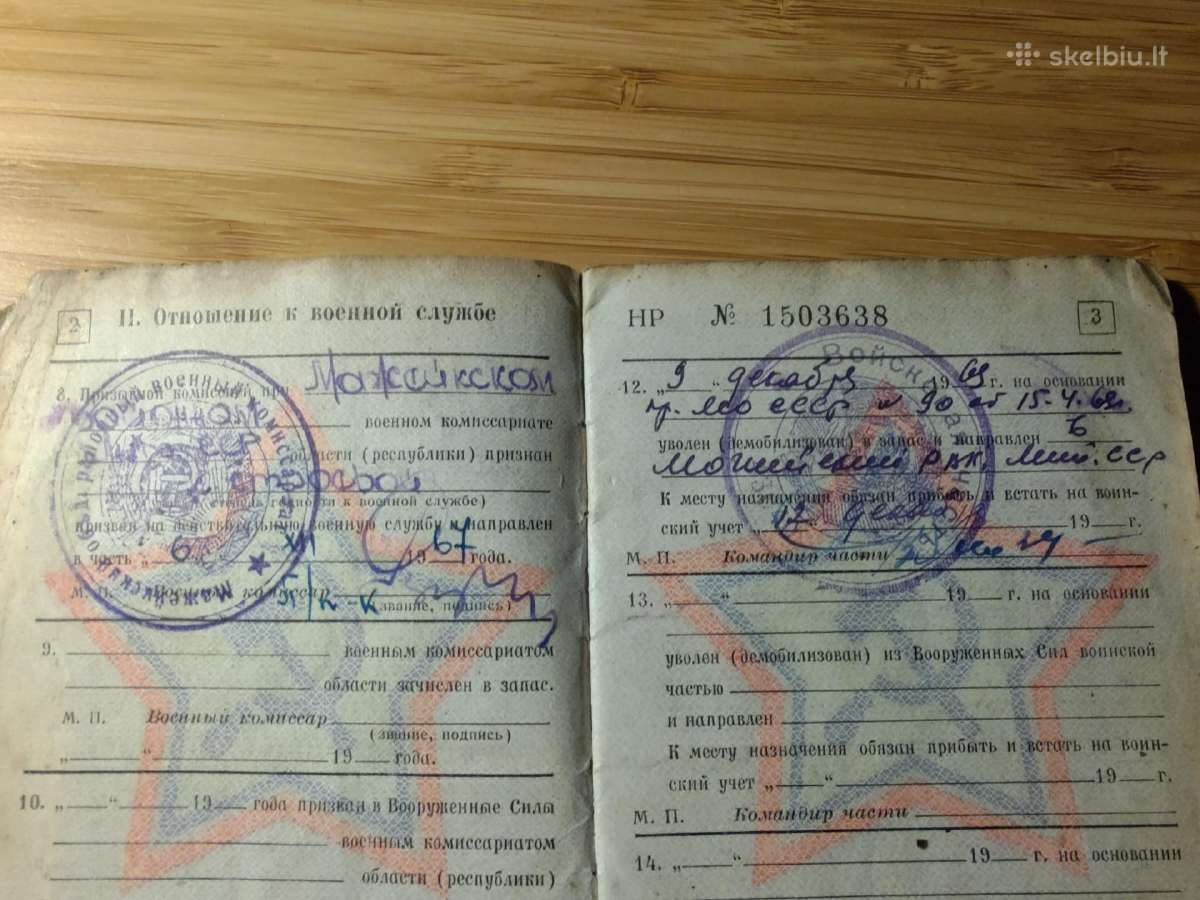 skelbiu.lt
2
II. Отношение к военной службе
8. Призывной комиссией при
военном комиссариате
области (республики) признан
степень годности к военной службе)
призван на действительную военную службу и направлен
в часть „ 6 “ XI 1967 года.
М. П. Военный комиссар
(звание, подпись)
9. военным комиссариатом
области зачислен в запас.
М. П. Военный комиссар
(звание, подпись)
„ “ 19 года.
10. „ “ 19 года призван в Вооруженные Силы
военным комиссариатом
области (республики)
НР № 1503638
3
12. „ 9 “ декабря 1969 г. на основании
пр. МО СССР № 90 от 15.4.69г.
уволен (демобилизован) в запас и направлен в
РВК, СССР
К месту назначения обязан прибыть и встать на воин-
ский учет „ 12 “ 19 г.
М. П. Командир части
13. „ “ 19 г. на основании
уволен (демобилизован) из Вооруженных Сил воинской
частью
и направлен
К месту назначения обязан прибыть и встать на воин-
ский учет „ “ 19 г.
М. П. Командир части
14. „ “ 19 г. на основании